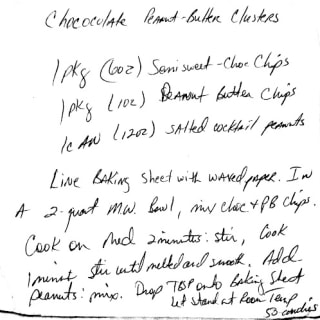 Chocolate Peanut-Butter Clusters
1 pkg (6oz) Semisweet-Choc Chips
1 pkg (1oz) Peanut Butter Chips
1c AN (12oz) salted cocktail peanuts
Line Baking Sheet with waxed paper. In
A 2-quart M.W. Bowl, mix choc + PB Chips.
Cook on Med 2 minutes: stir, Cook
1 minut stir until melted and smooth. Add
peanuts: mix. Drop TBP onto Baking Sheet
Let stand at Room Temp
50 candies